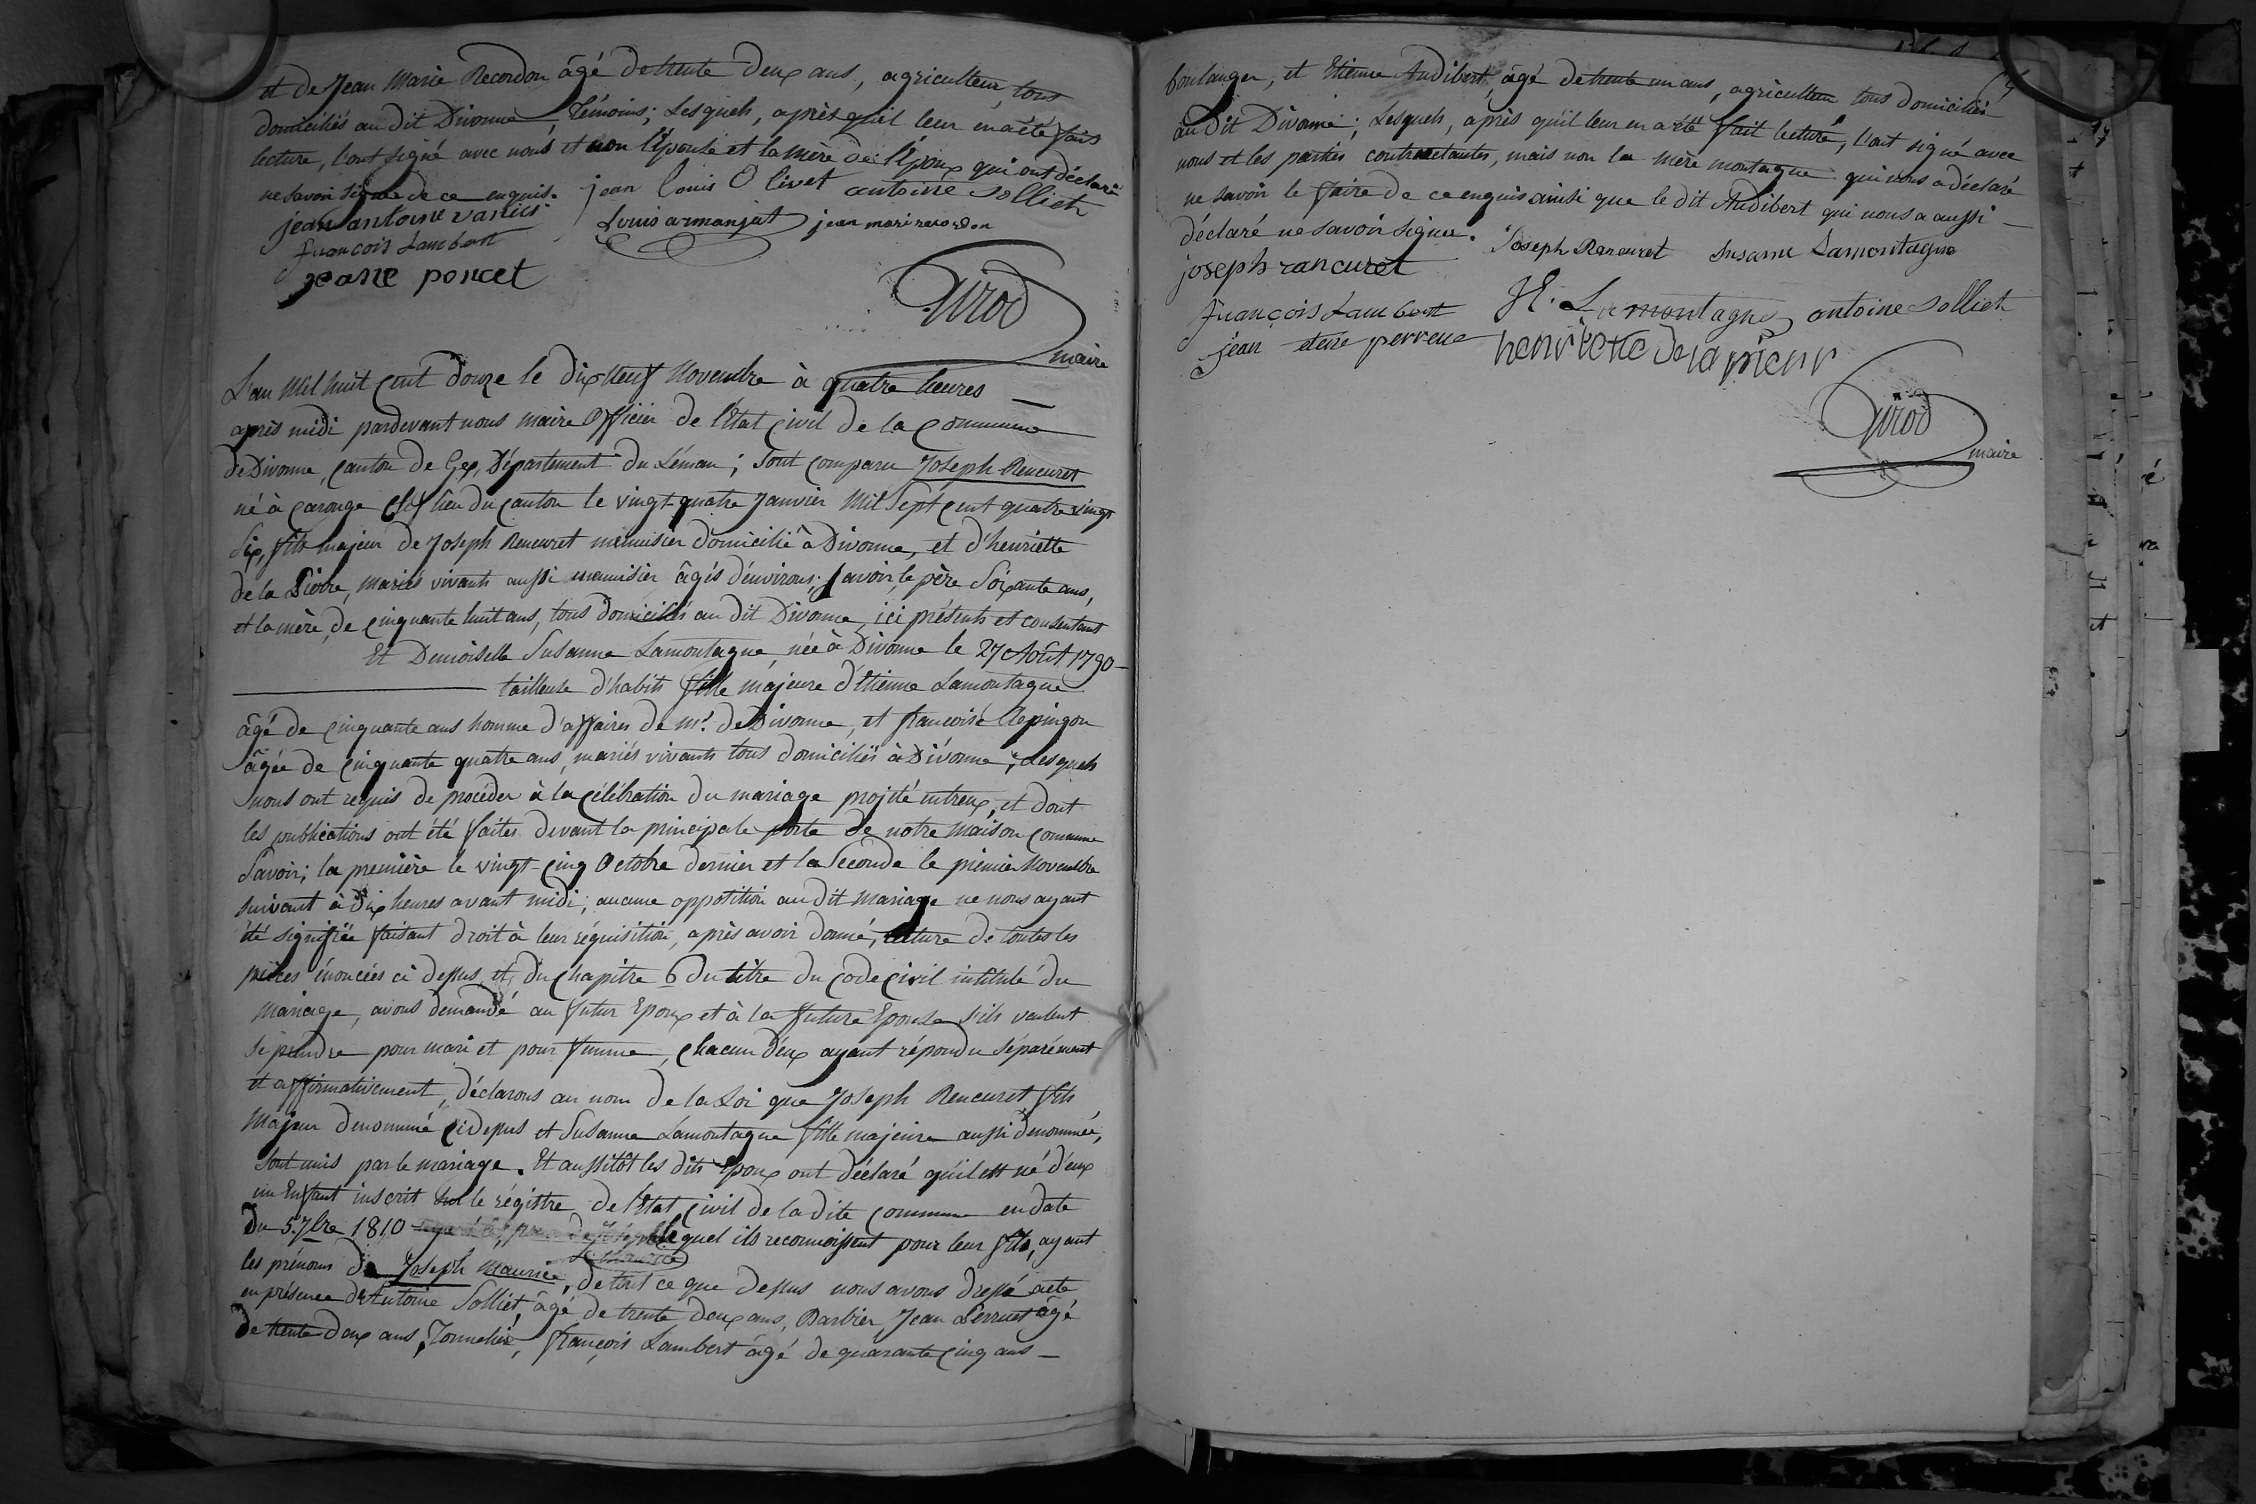 et de Jean Marie Recordon âgé de trente deux ans, agriculteur, tous
domiciliés au dit Divonne, Témoins; Lesquels, après qu'il leur en a été fait
lecture, l'ont signé avec nous et non l'Epouse et la mère de l'Epoux qui ont déclaré
ne savoir signer de ce enquis.
jean louis Olivet antoine Solliet
jean antoine vanier
Louis armanjat jean mari recordon
françois Lambert
jeane poncet
Girod
maire
L'an Mil huit cent douze le dix neuf Novembre à quatre heures
après midi pardevant nous maire Officier de l'Etat Civil de la Commune
de Divonne, canton de Gex, Département du Léman; sont comparu Joseph Reneuret
né à Carouge Chef lieu du canton le vingt-quatre Janvier Mil sept cent quatre vingt
six, fils majeur de Joseph Reneuret menuisier domicilié à Divonne, et d'henriette
de la Pierre, mariés vivants aussi menuisier âgés d'environs; savoir, le père Soixante ans,
et la mère, de cinquante huit ans, tous domiciliés au dit Divonne, ici présents et consentant
Et Demoiselle Susanne Lamontagne, née à Divonne le 27 Août 1790
tailleuse d'habits fille majeure d'Etienne Lamontagne
âgé de cinquante ans homme d'affaires de Mr. de Divonne, et francoise Repingon
âgée de cinquante quatre ans, mariés vivants tous domiciliés à Divonne; Lesquels
nous ont requis de procéder à la célébration du mariage projeté entreux, et dont
les publications ont été faites devant la principale porte de notre Maison Commune
Savoir; la première le vingt-cinq Octobre dernier et la Seconde le premier Novembre
suivant à dix heures avant midi; aucune oppotition au dit Mariage ne nous ayant
été signifiée faisant droit à leur réquisition, après avoir donné, lecture de toutes les
pièces énoncées ci dessus, et, du Chapitre 6 du titre du Code Civil intitulé du
Mariage, avons demandé au futur Epoux et à la future Epouse s'ils veulent
se prendre pour mari et pour femme, Chacun d'eux ayant répondu séparément
et affirmativement, déclarons au nom de la Loi que Joseph Reneuret fils
Majeur denommé ci dessus et Susanne Lamontagne fille majeure aussi denommée,
sont unis par le mariage. Et aussitôt les dits Epoux ont déclaré qu'il est né d'eux
un Enfant inscrit sur le régistre de l'Etat Civil de la dite Commune en date
du 5 7bre 1810 lequel ils reconnoissent pour leur fils, ayant
les prénoms de Joseph Maurice, de tout ce que dessus nous avons dressé acte
en présence de Antoine Solliet, âgé de trente deux ans, Barbier, Jean Perruet âgé
de trente deux ans, Tonnelier, françois Lambert âgé de quarante cinq ans
boulanger, et Etienne Audibert, âgé de trente un ans, agriculteur tous domiciliés
au dit Divonne; Lesquels, après qu'il leur en a été fait lecture, l'ont signé avec
nous et les parties contractantes, mais non la mère montagne qui nous a déclaré
ne savoir le faire de ce enquis ainsi que le dit Audibert qui nous a aussi
déclaré ne savoir signer.
Joseph Reneuret Susanne Lamontagne
joseph rancuret
françois Lambert E. Lamontagne antoine Solliet
jean
henriette de la pierr
Girod
maire